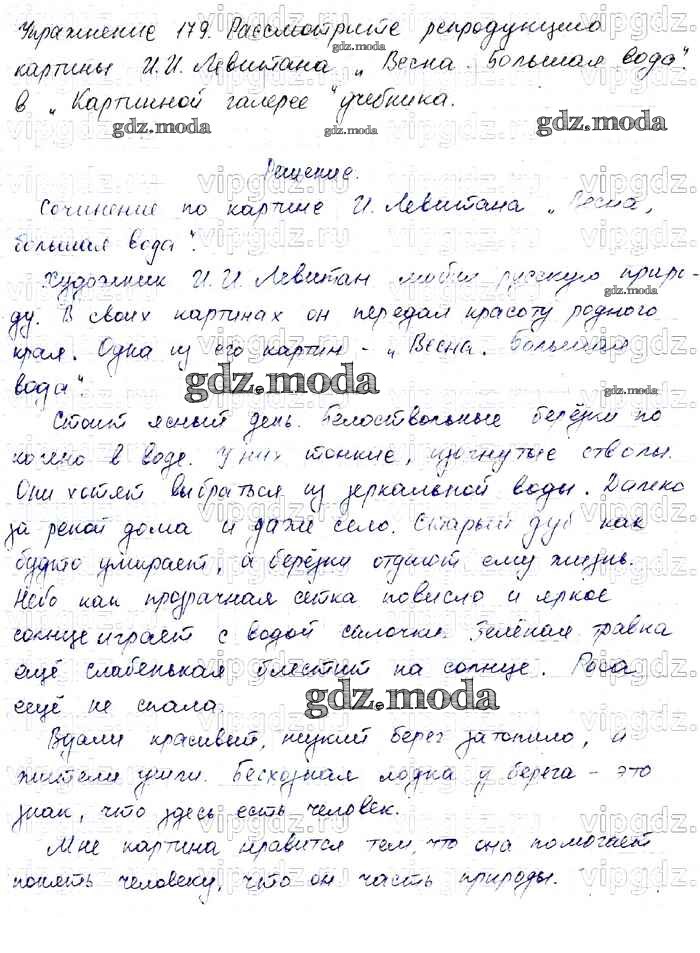 Упражнение 179. Рассмотрите репродукцию
картины И.И. Левитана „Весна. Большая вода"
в „Картинной галерее" учебника.
Решение.
Сочинение по картине И. Левитана „Весна,
большая вода".
Художник И.И. Левитан любил русскую приро-
ду. В своих картинах он передал красоту родного
края. Одна из его картин - „Весна. Большая
вода".
Стоит ясный день. Белоствольные берёзки по
колено в воде. У них тонкие, изогнутые стволы.
Они хотят выбраться из зеркальной воды. Далеко
за рекой дома и даже село. Старый дуб как
будто умирает, а берёзки отдают ему жизнь.
Небо как прозрачная сетка повисло и яркое
солнце играет с водой салочки. Зелёная травка
ещё слабенькая блестит на солнце. Роса
ещё не спала.
Вдали красивый, низкий берег затопило, и
жители ушли. Бесхозная лодка у берега - это
знак, что здесь есть человек.
Мне картина нравится тем, что она помогает
понять человеку, что он часть природы.
gdz.moda
gdz.moda
gdz.moda
gdz.moda
gdz.moda
gdz.moda
gdz.moda
gdz.moda
gdz.moda
vipgdz.ru